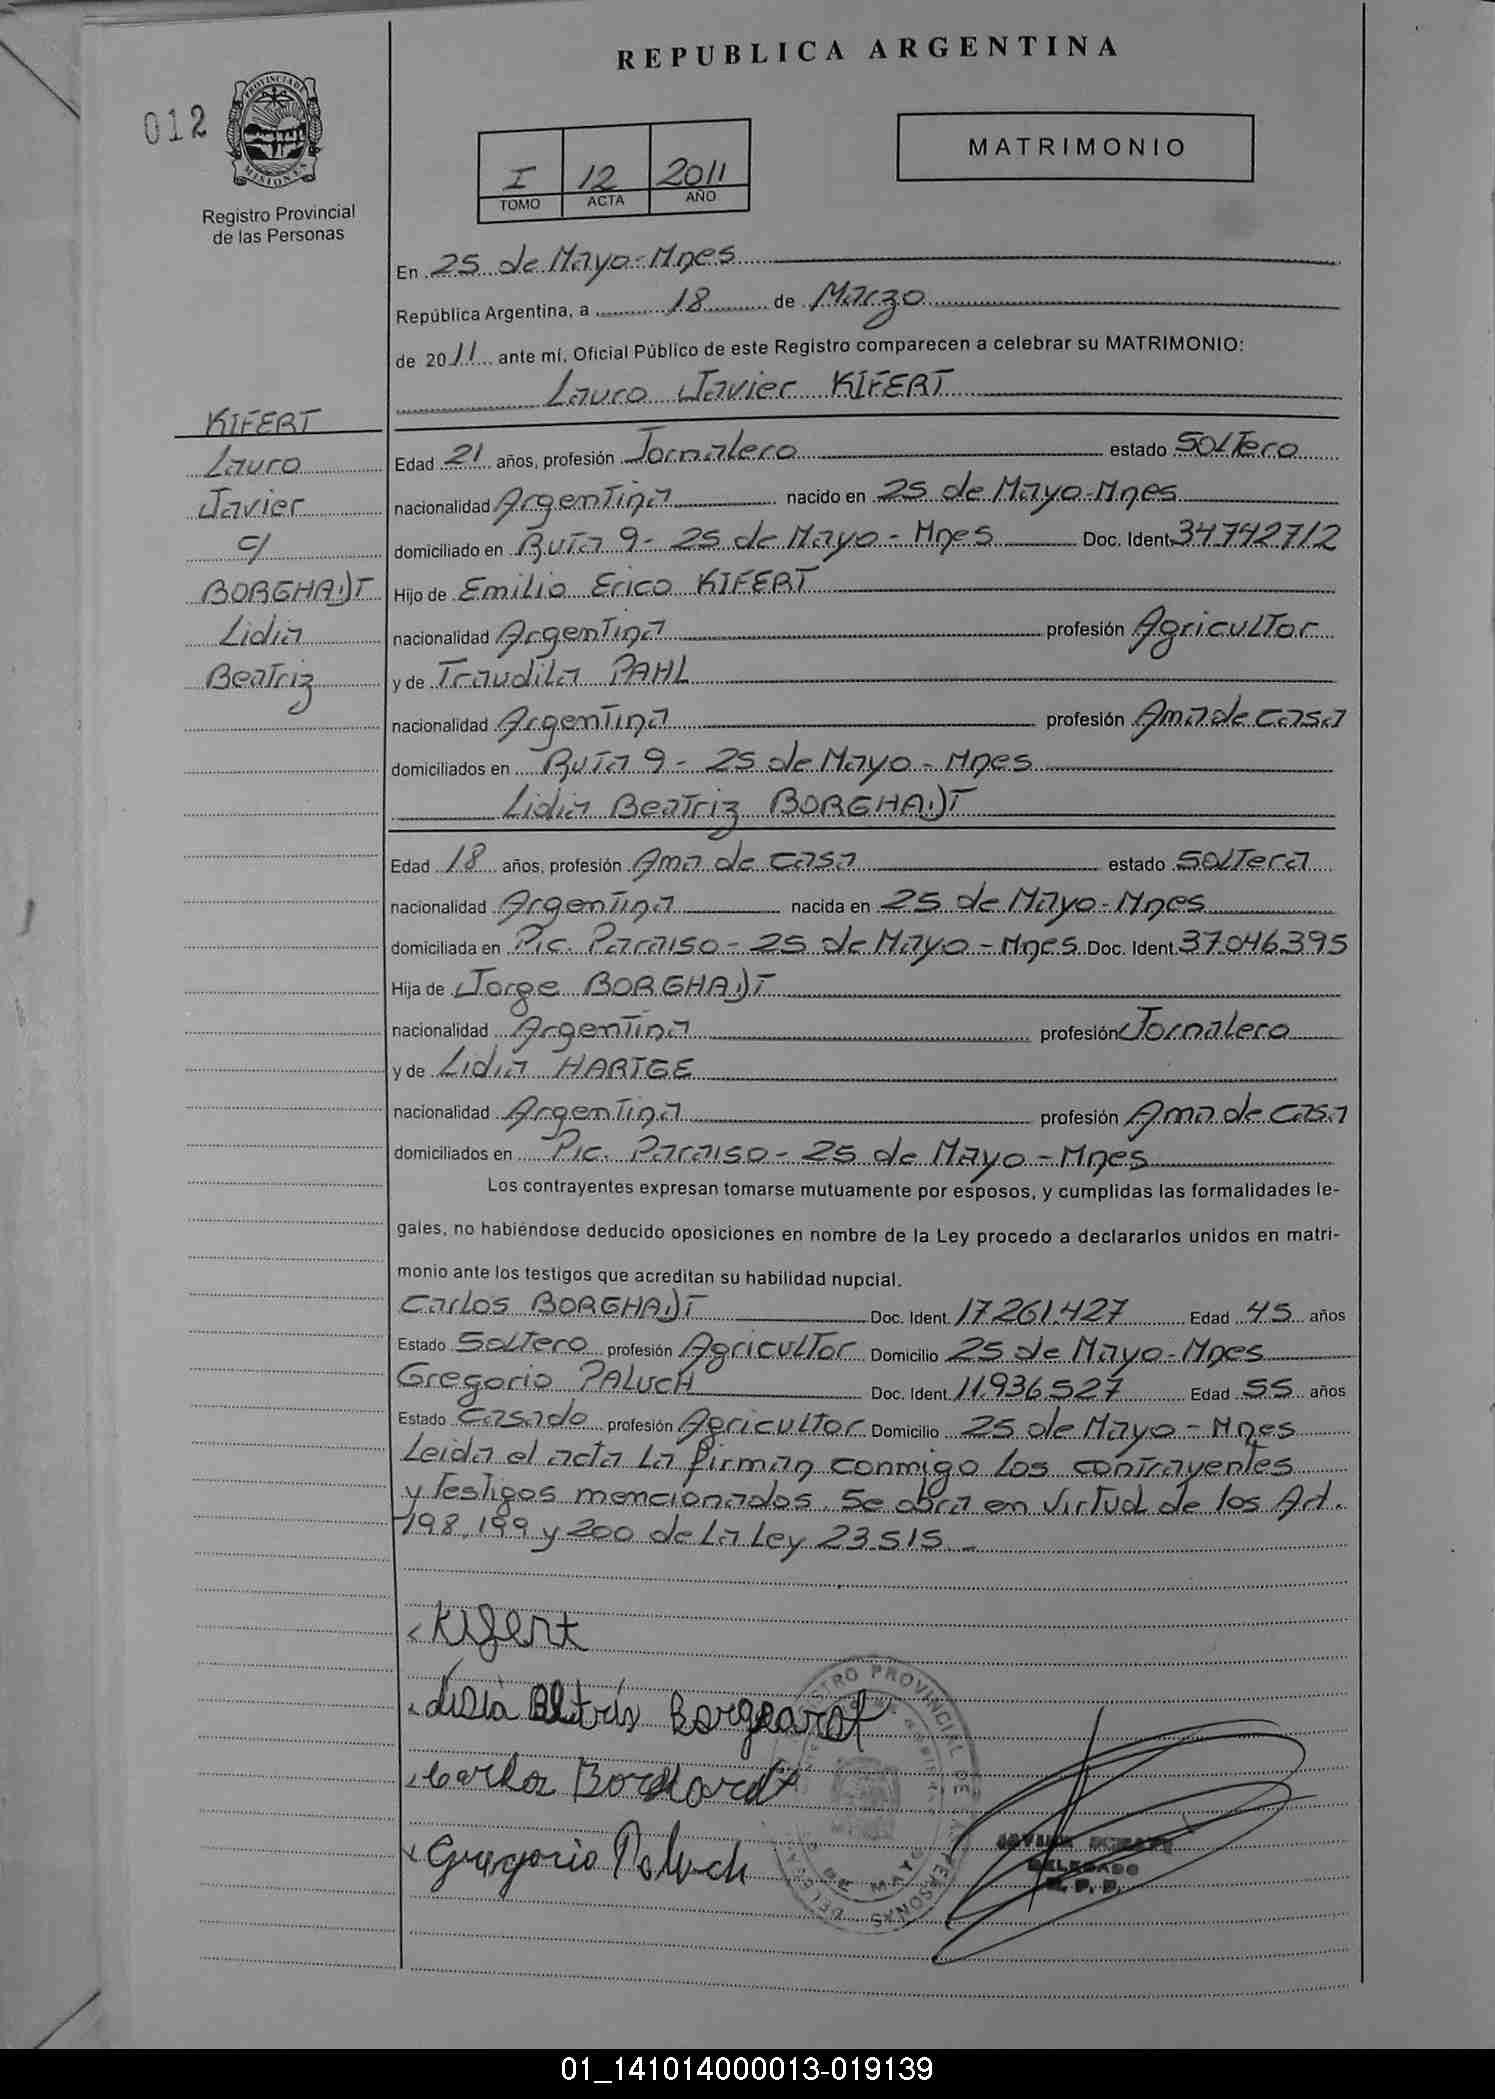 REPUBLICA ARGENTINA
012
PROVINCIA DE
MISIONES
Registro Provincial
de las Personas
I 12 2011
TOMO ACTA AÑO
MATRIMONIO
En 25 de Mayo-Mnes
República Argentina, a 18 de Marzo
de 2011 ante mí, Oficial Público de este Registro comparecen a celebrar su MATRIMONIO:
Lauro Javier KIFERT
KIFERT
Lauro
Javier
c/
BORGHADT
Lidia
Beatriz
Edad 21 años, profesión Jornalero estado Soltero
nacionalidad Argentina nacido en 25 de Mayo-Mnes
domiciliado en Ruta 9- 25 de Mayo - Mnes Doc. Ident. 34.742712
Hijo de Emilio Erico KIFERT
nacionalidad Argentina profesión Agricultor
y de Traudila PAHL
nacionalidad Argentina profesión Ama de casa
domiciliados en Ruta 9 - 25 de Mayo - Mnes
Lidia Beatriz BORGHADT
Edad 18 años, profesión Ama de casa estado Soltera
nacionalidad Argentina nacida en 25 de Mayo-Mnes
domiciliada en Pic. Paraiso - 25 de Mayo - Mnes Doc. Ident. 37.046.395
Hija de Jorge BORGHADT
nacionalidad Argentina profesión Jornalero
y de Lidia HARTGE
nacionalidad Argentina profesión Ama de casa
domiciliados en Pic. Paraiso - 25 de Mayo - Mnes
Los contrayentes expresan tomarse mutuamente por esposos, y cumplidas las formalidades le-
gales, no habiéndose deducido oposiciones en nombre de la Ley procedo a declararlos unidos en matri-
monio ante los testigos que acreditan su habilidad nupcial.
Carlos BORGHADT Doc. Ident. 17.261.427 Edad 45 años
Estado Soltero profesión Agricultor Domicilio 25 de Mayo-Mnes
Gregorio PALUCH Doc. Ident. 11.936.527 Edad 55 años
Estado Casado profesión Agricultor Domicilio 25 de Mayo - Mnes
Leida el acta la firman conmigo los contrayentes
y testigos mencionados. Se obra en virtud de los Art.
198, 199 y 200 de la Ley 23.515.-
Kifert
Lidia Beatris Borgeardt
Carlos Borghardt
x Gregorio Paluch
REGISTRO PROVINCIAL DE LAS PERSONAS
DE MAYO
DELEGADO
R. P. P.
01_141014000013-019139